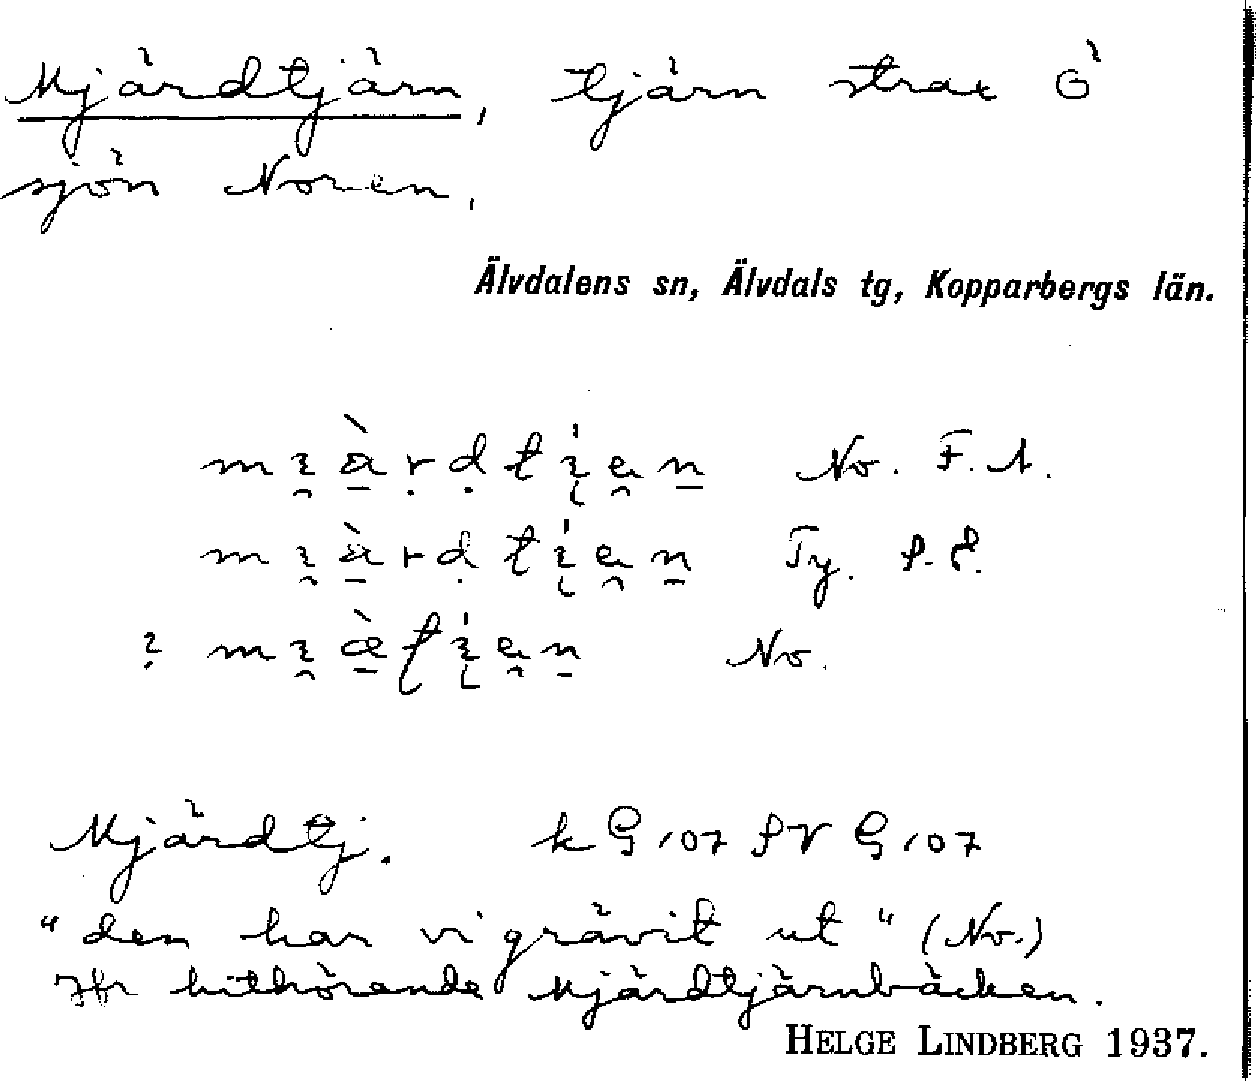 Mjärdtjärn, tjärn strax Ö
sjön Noren.
Älvdalens sn, Älvdals tg, Kopparbergs län.
No. F. A.
Ty.
? No.
Mjärdtj. k G 107 G 107
"den har vi grävit ut" (No.)
Jfr hithörande Mjärdtjärnbäcken.
HELGE LINDBERG 1937.